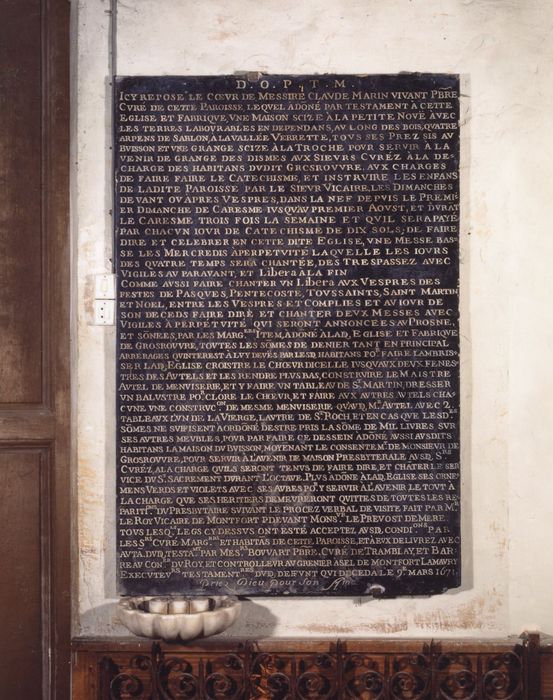 D.O.P.T.M.
ICY REPOSE LE CŒVR DE MESSIRE CLAVDE MARIN VIVANT PBRE
CVRÉ DE CETTE PAROISSE LEQVEL A DÕNÉ PAR TESTAMENT À CETTE
EGLISE ET FABRIQVE, VNE MAISON SCIZE À LA PETITE NOVË AVEC
LES TERRES LABOVRABLES EN DEPENDANS, AV LONG DES BOIS, QVATRE
ARPENS DE SABLON, A LA VALLÉE VERRETTE, TOVS SES PREZ SIS AV
BVISSON ET VNE GRANGE SCIZE À LA TROCHE POVR SERVIR A LA
VENIR DE GRANGE DES DISMES AVX SIEVRS CVRÉZ À LA DE-
CHARGE DES HABITANS DVDIT GROSROVVRE, AVX CHARGES
DE FAIRE FAIRE LE CATECHISME, ET INSTRVIRE LES ENFANS
DE LADITE PAROISSE PAR LE SIEVR VICAIRE, LES DIMANCHES
DEVANT OV APRES VESPRES, DANS LA NEF DEPVIS LE PREMI-
ER DIMANCHE DE CARESME IVSQV'AV PREMIER AOVST, ET DVRÃT
LE CARESME TROIS FOIS LA SEMAINE ET QVIL SERA PAYÉ
PAR CHACVN IOVR DE CATECHISME DE DIX SOLS; DE FAIRE
DIRE ET CELEBRER EN CETTE DITE EGLISE, VNE MESSE BAS-
SE LES MERCREDIS A PERPETVITÉ LAQVELLE LES IOVRS
DES QVATRE TEMPS SERA CHANTÉE, DES TRESPASSEZ AVEC
VIGILES AVPARAVANT, ET LIBERA À LA FIN
COMME AVSSI FAIRE CHANTER VN LIBERA AVX VESPRES DES
FESTES DE PASQVES, PENTECOSTE, TOVSSAINTS, SAINT MARTIN
ET NOEL, ENTRE LES VESPRES ET COMPLIES ET AV IOVR DE
SON DECEDS FAIRE DIRE ET CHANTER DEVX MESSES AVEC
VIGILES À PERPETVITÉ QVI SERONT ANNONCÉES AV PROSNE,
ET SONÉES, PAR LES MARG.ERS ITEM, A DONÉ A LAD. EGLISE ET FABRIQVE
DE GROSROVVRE, TOVTES LES SÕMES DE DENIER TANT EN PRINCIPAL
ARRERAGES QV'INTEREST À LVY DEVËS PAR LESD. HABITANS PO.R FAIRE LAMBRIS-
SER LAD. EGLISE CROISTRE LE CHŒVR DICELLE IVSQV'AVX DEVX FENES-
TRES DES AVTELS ET LES RENDRE PLVS BAS, CONSTRVIRE LE MAISTRE
AVTEL DE MENVISERIE, ET Y FAIRE VN TABLEAV DE S.T MARTIN, DRESSER
VN BALVSTRE PO.R CLORE LE CHŒVR, ET FAIRE AVX AVTRES AVTELS CHA-
CVNE VNE CONSTRVC.ON DE MESME MENVISERIE QV'AVD. M.E AVTEL AVEC 2.
TABLEAVX LVN DE LA VIERGE, LAVTRE DE S.T ROCH ET EN CAS QVE LESD.TES
SÕMES NE SVFISENT A ORDÕNÉ DESTRE PRIS LA SÕME DE MIL LIVRES SVR
SES AVTRES MEVBLES, POVR PARFAIRE CE DESSEIN A DONÉ AVSSI AVSDITS
HABITANS LA MAISON DV BVISSON, MOYENANT LE CONSENTEM.T DE MONSIEVR DE
GROSROVVRE, POVR SERVIR À LAVENIR DE MAISON PRESBYTERALE AVSD. S.RS
CVRÉZ À LA CHARGE QVILS SERONT TENVS DE FAIRE DIRE, ET CHÃTER LE SER
VICE DV S.T SACREMENT DVRANT L'OCTAVE, PLVS A DÕNÉ À LAD. EGLISE SES ORNE
MENS VERDS ET VIOLETS AVEC SES AVBES PO.R Y SERVIR À LAVENIR LE TOVT A
LA CHARGE QVE SES HERITIERS DEMEVRERONT QVITTES DE TOVTES LES RE-
PARITI.ONS DV PRESBYTAIRE SVIVANT LE PROCEZ VERBAL DE VISITE FAIT PAR M.R
LE ROY VICAIRE DE MONTFORT PDEVANT MONS.R LE PREVOST DE MERE.
TOVS LESQ.LS LEGS CY DESSVS ONT ESTÉ ACCEPTEZ AVSD. CONDI.ONS PA.R
LES S.RS CVRÉ MARG.ERS ET HABITÃS DE CETTE PAROISSE, ET À EVX DELIVREZ AVEC
AVTÃ. DVD. TESTA.T PAR MES.RS BOVVART PBRE, CVRÉ DE TRAMBLAY, ET BAR-
RE AV CON.ER DV ROY, ET CONTROLLEVR AV GRENIER A SEL DE MONTFORT LAMAVRY
EXECVTEV.RS TESTAMENT.RES DVD. DEFVNT QVI DECEDA LE 9.E MARS 1671
Priez Dieu Pour Son Ame